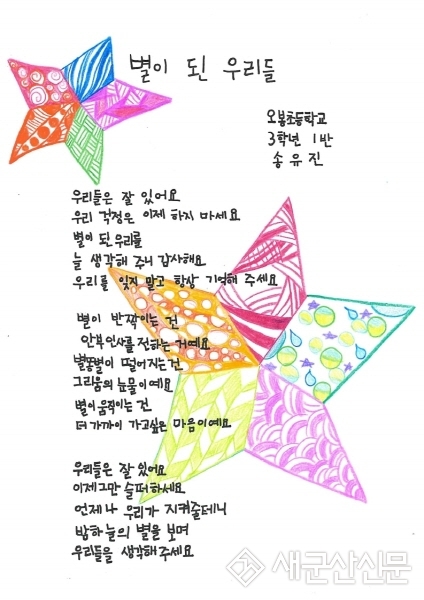 별이 된 우리들
오봉초등학교
3학년 1반
송유진
우리들은 잘 있어요
우리 걱정은 이제 하지 마세요
별이 된 우리를
늘 생각해 주니 감사해요
우리를 잊지 말고 항상 기억해 주세요
별이 반짝이는 건
안부인사를 전하는 거예요
별똥별이 떨어지는건
그리움의 눈물이예요
별이 움직이는 건
더 가까이 가고싶은 마음이예요
우리들은 잘 있어요
이제그만 슬퍼하세요
언제나 우리가 지켜줄테니
밤하늘의 별을 보며
우리들을 생각해주세요
새군산신문